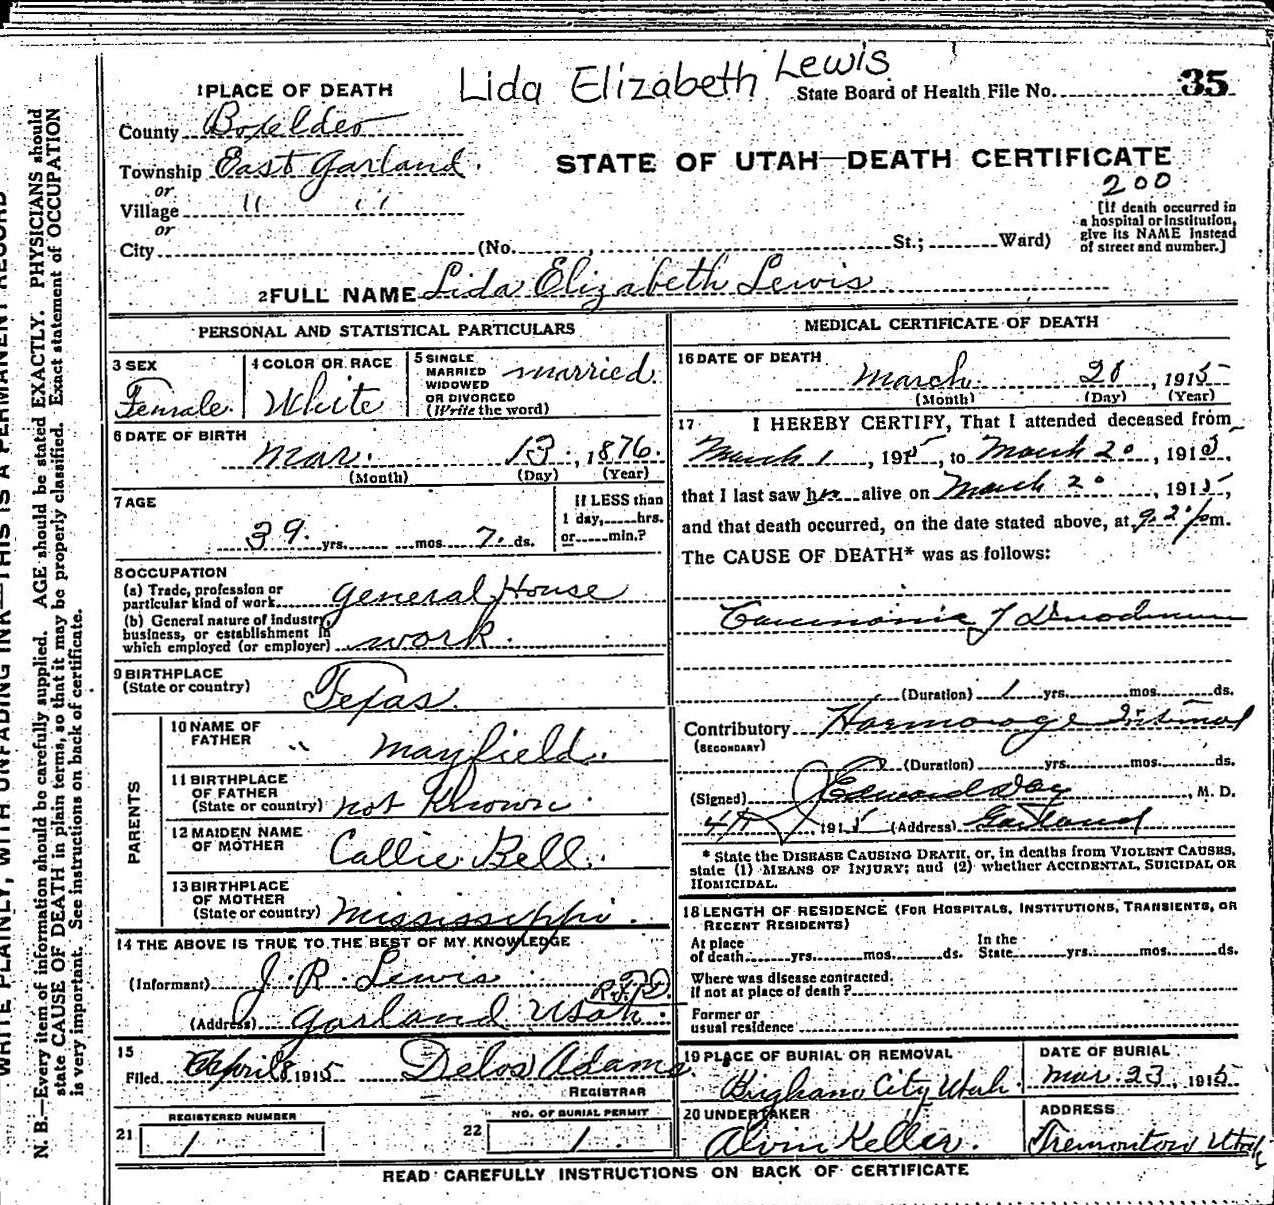 Lida Elizabeth Lewis
1 PLACE OF DEATH
State Board of Health File No. 35
County Boxelder
Township East Garland.
or
Village " "
or
City (No. St.; Ward)
STATE OF UTAH—DEATH CERTIFICATE
200
[If death occurred in
a hospital or institution,
give its NAME instead
of street and number.]
2 FULL NAME Lida Elizabeth Lewis
PERSONAL AND STATISTICAL PARTICULARS
3 SEX
Female.
4 COLOR OR RACE
White
5 SINGLE
MARRIED
WIDOWED
OR DIVORCED
(Write the word)
married.
6 DATE OF BIRTH
Mar. 13, 1876.
(Month) (Day) (Year)
7 AGE
39. yrs. mos. 7. ds.
If LESS than
1 day, hrs.
or min.?
8 OCCUPATION
(a) Trade, profession or
particular kind of work general House
(b) General nature of Industry,
business, or establishment in
which employed (or employer) work.
9 BIRTHPLACE
(State or country) Texas.
PARENTS
10 NAME OF
FATHER " Mayfield.
11 BIRTHPLACE
OF FATHER
(State or country) not Known.
12 MAIDEN NAME
OF MOTHER Callie Bell.
13 BIRTHPLACE
OF MOTHER
(State or country) Mississippi.
14 THE ABOVE IS TRUE TO THE BEST OF MY KNOWLEDGE
(Informant) J. R. Lewis
R.F.D.
(Address) Garland Utah.
15
Filed April 8 1915 Delos Adams
REGISTRAR
REGISTERED NUMBER
21 1
NO. OF BURIAL PERMIT
22 1.
MEDICAL CERTIFICATE OF DEATH
16 DATE OF DEATH
March 20, 1915
(Month) (Day) (Year)
17 I HEREBY CERTIFY, That I attended deceased from
March 1, 1915, to March 20, 1915,
that I last saw her alive on March 20, 1915,
and that death occurred, on the date stated above, at m.
The CAUSE OF DEATH* was as follows:
Carcinoma of Duodenum
(Duration) 1 yrs. mos. ds.
Contributory Haemorrage Intestinal
(SECONDARY)
(Duration) yrs. mos. ds.
(Signed) Edward Day, M. D.
1915 (Address) Garland
* State the DISEASE CAUSING DEATH, or, in deaths from VIOLENT CAUSES,
state (1) MEANS OF INJURY; and (2) whether ACCIDENTAL, SUICIDAL OR
HOMICIDAL.
18 LENGTH OF RESIDENCE (FOR HOSPITALS, INSTITUTIONS, TRANSIENTS, OR
RECENT RESIDENTS)
At place
of death yrs. mos. ds.
In the
State yrs. mos. ds.
Where was disease contracted.
If not at place of death?
Former or
usual residence
19 PLACE OF BURIAL OR REMOVAL
Brigham City Utah.
DATE OF BURIAL
Mar. 23, 1915
20 UNDERTAKER
Alvin Keller.
ADDRESS
Tremonton Utah
READ CAREFULLY INSTRUCTIONS ON BACK OF CERTIFICATE
WRITE PLAINLY, WITH UNFADING INK—THIS IS A PERMANENT RECORD
N. B.—Every item of information should be carefully supplied. AGE should be stated EXACTLY. PHYSICIANS should
state CAUSE OF DEATH in plain terms, so that it may be properly classified. Exact statement of OCCUPATION
is very important. See instructions on back of certificate.